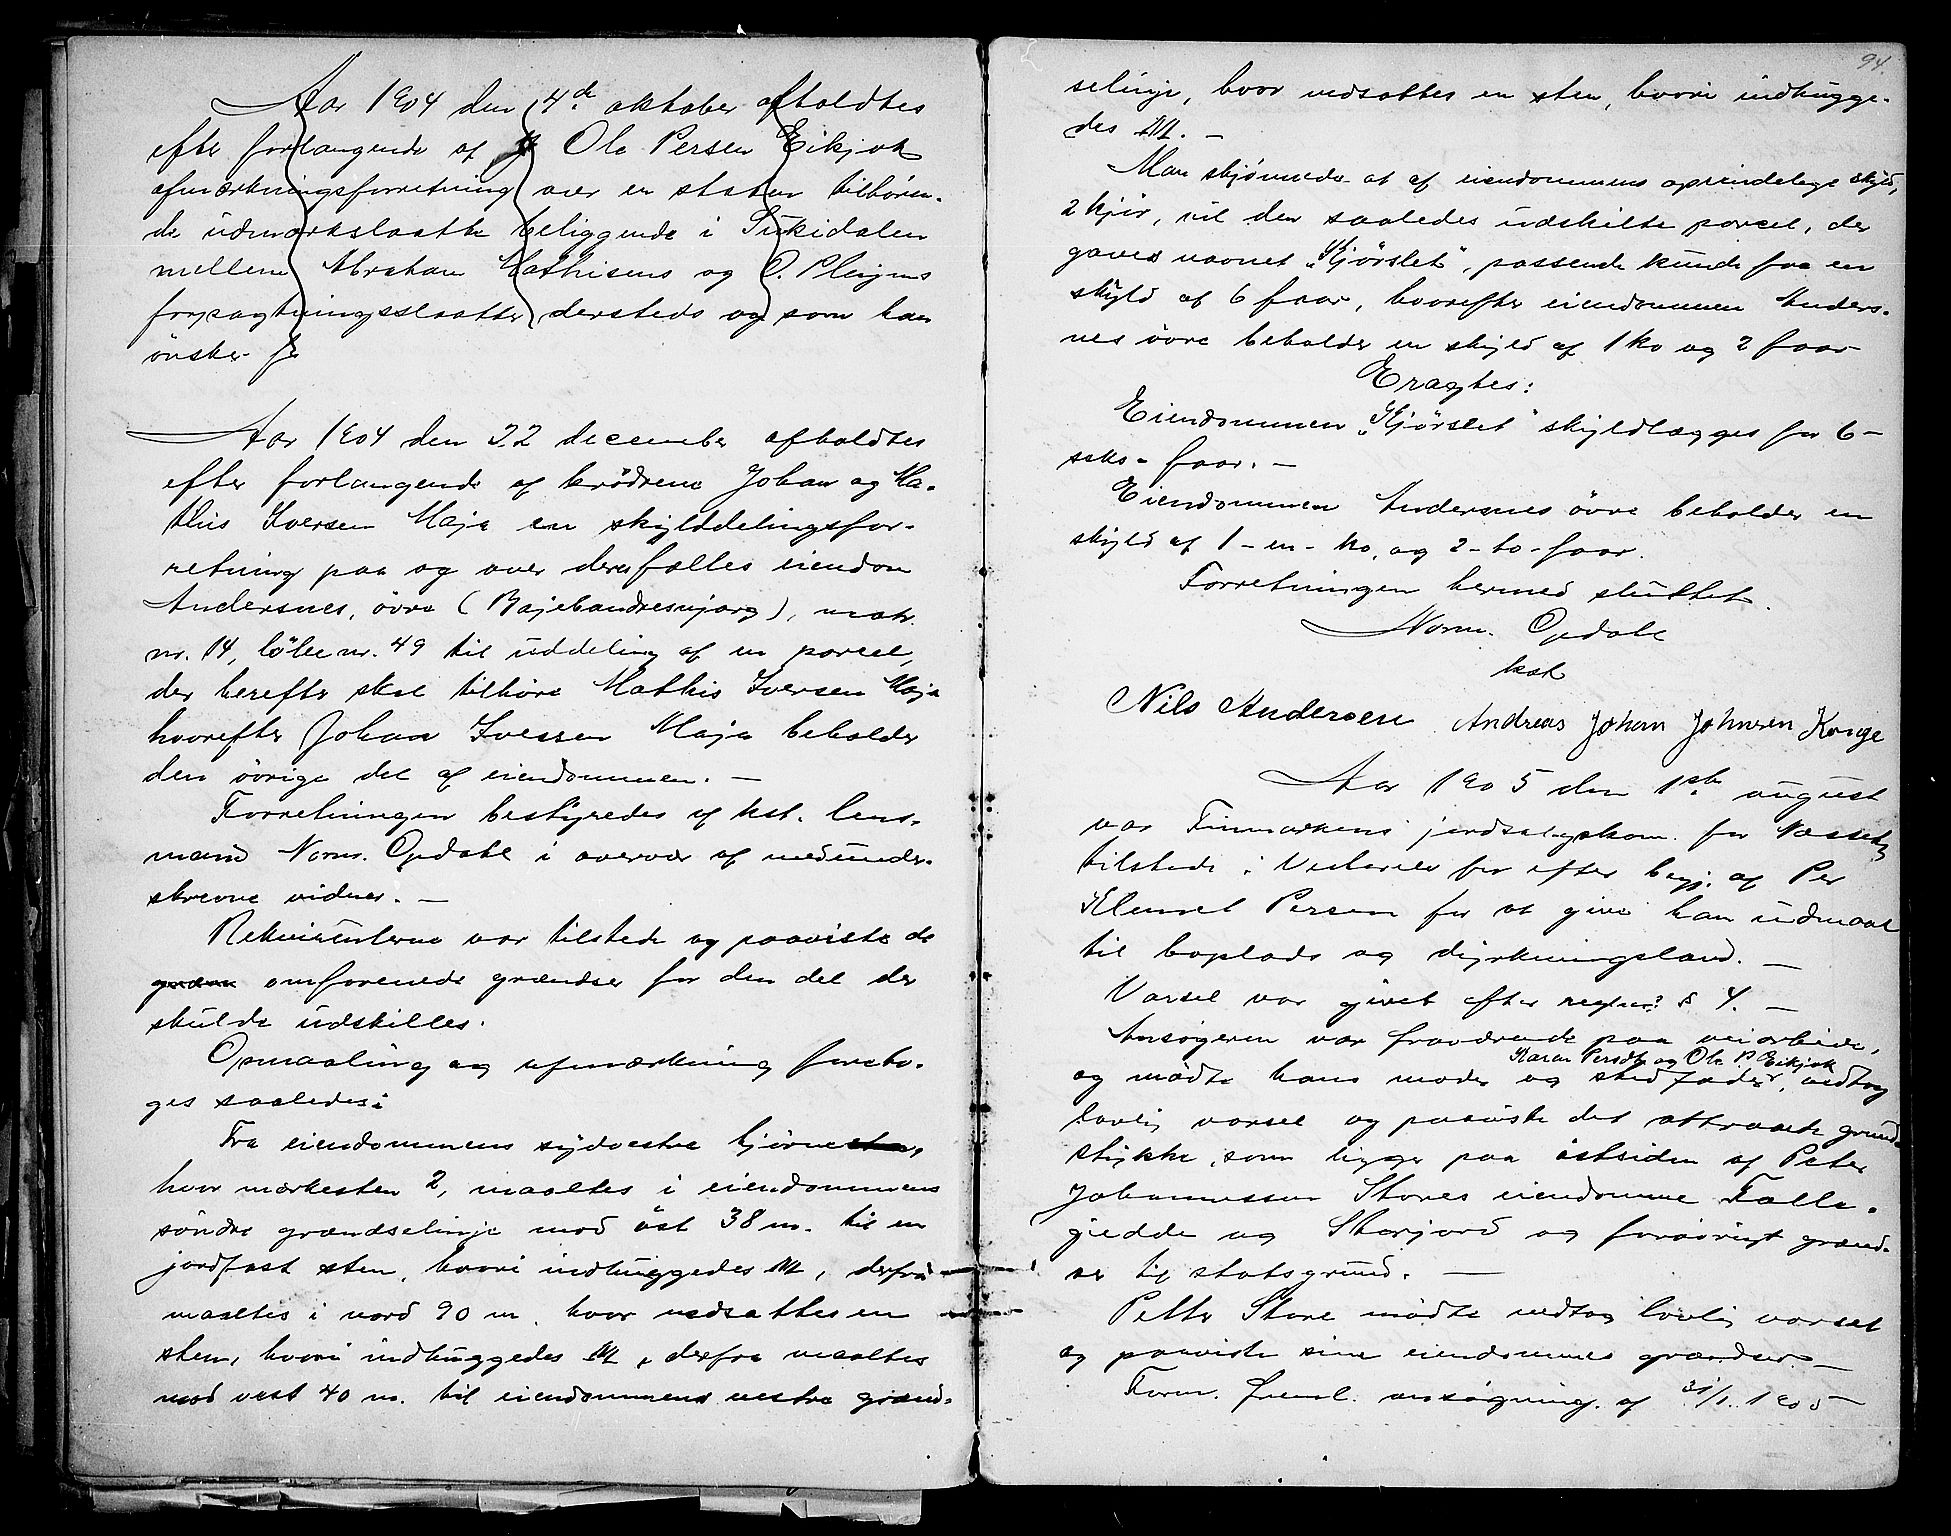 Aar 1904 den 4de oktober afholdtes
efter forlangende af Ole Persen Eikjok
afmærkningsforretning over en staten tilhøren-
de udmarkslaatte beliggende i Sukidalen
mellem Abraham Mathisens og O. Pleyms
forpagtningsslaatter dersteds og som han
ønsker f
Aar 1904 den 22 december afholdtes
efter forlangende af brødrene Johan og Ma-
this Iversen Maja en skylddelingsfor-
retning paa og over deres fælles eiendom
Andersnes, øvre (Bajebandresnjarg), matr.
nr. 14, løbe nr. 49 til uddeling af en parcel,
der herefter skal tilhøre Mathis Iversen Maja
hvorefter Johan Iversen Maja beholder
den øvrige del af eiendommen. —
Forretningen bestyredes af kst. lens-
mand Norm. Opdahl i overvær af medunder-
skrevne vidner. —
Rekvirenterne var tilstede og paaviste de
græn omforenede grændser for den del der
skulde udskilles.
Opmaaling og afmærkning foreto-
ges saaledes:
Fra eiendommens sydvestre hjørne
hvor mærkesten 2, maaltes i eiendommens
søndre grændselinje mod øst 38 m. til en
jordfast sten, hvori indhuggedes M, derfra
maaltes i nord 90 m. hvor nedsattes en
sten, hvori indhuggedes M, derfra maaltes
mod vest 40 m. til eiendommens vestre grænd-
94.
selinje, hvor nedsattes en sten, hvori indhugge-
des M. —
Man skjønnede at af eiendommens oprindelige skyld,
2 kjør, vil den saaledes udskilte parcel, der
gaves navnet "Kjørslet", passende kunde faa en
skyld af 6 faar, hvorefter eiendommen Anders-
nes øvre beholder en skyld af 1 ko og 2 faar
Eragtes:
Eiendommen "Kjørslet" skyldlægges for 6 –
seks – faar. —
Eiendommen Andersnes øvre beholder en
skyld af 1 – en – ko, og 2 – to – faar.
Forretningen hermed sluttet.
Norm. Opdahl
kst
Nils Andersen Andreas Johan Johnsen Konge
Aar 1905 den 1ste august
var Finmarkens jordsalgskom. for Næsseby
tilstede i for efter begj. af Per
Klemet Persen for at give ham udmaal
til boplads og dyrkningsland. —
Varsel var givet efter § 4. —
Ansøgeren var fraværende paa veiarbeide,
Karen Persdtr og Ole P. Eikjok
og mødte hans moder og stedfader, vedtog
lovlig varsel og paaviste det attraaede grund-
stykke, som ligger paa østsiden af Peter
Johannessen Stores eiendomme Falle-
giedde og Storjord og forøvrigt grænd-
ser til statsgrund. —
Petter Store mødte vedtog lovlig varsel
og paaviste sine eiendommes grændser. —
Form. freml. ansøgning af 31/1. 1905 —